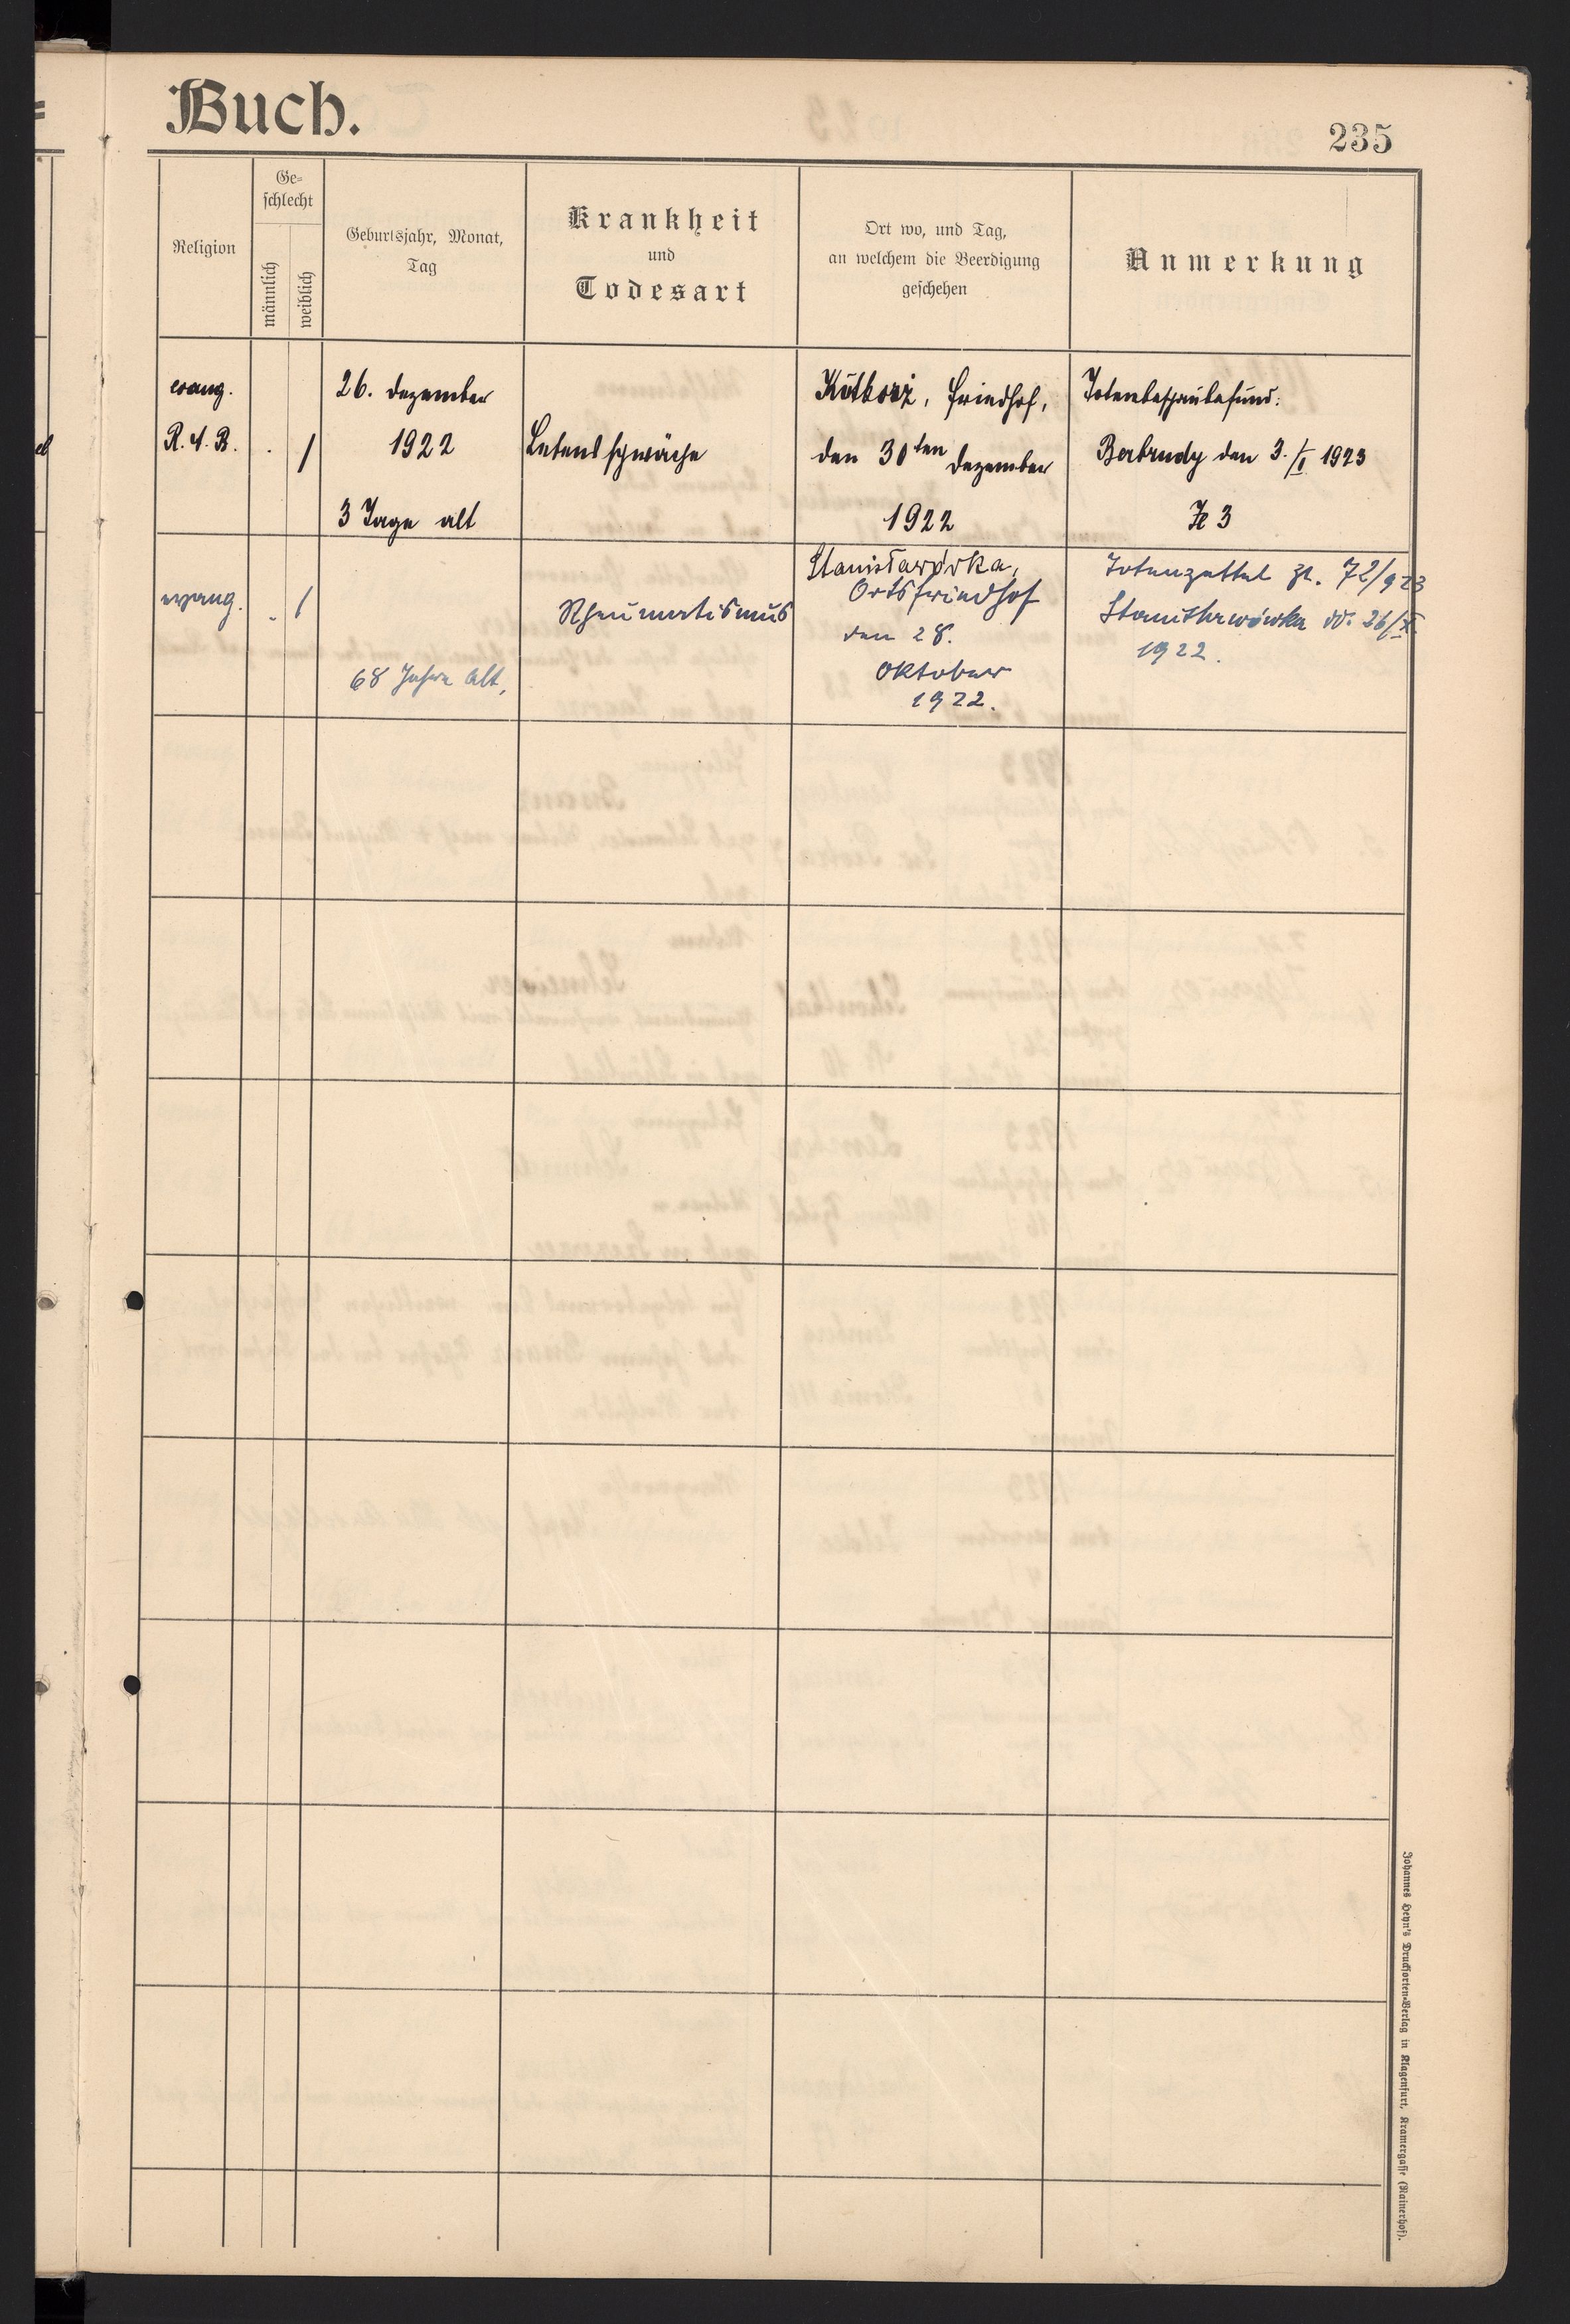 Buch.
235
Religion
Ge-
schlecht
männlich
weiblich
Geburtsjahr, Monat,
Tag
Krankheit
und
Todesart
Ort wo, und Tag,
an welchem die Beerdigung
geschehen
Anmerkung
evang.
R. A. B.
. 1
26. Dezember
1922
3 Tage alt
Lebensschwäche
Kuttorz, Friedhof,
den 30ten Dezember
1922
Totenbeschaubefund:
den 3./I 1923
3
evang.
. 1
68 Jahre alt,
Rheumatismus
Stanisławówka,
Ortsfriedhof
den 28.
Oktober
1922.
Totenzettel Zl. 72/923
Stanisławówka dd. 26/X.
1922.
Johannes Heyn's Drucksorten-Verlag in Klagenfurt, Kramergasse (Rainerhof).